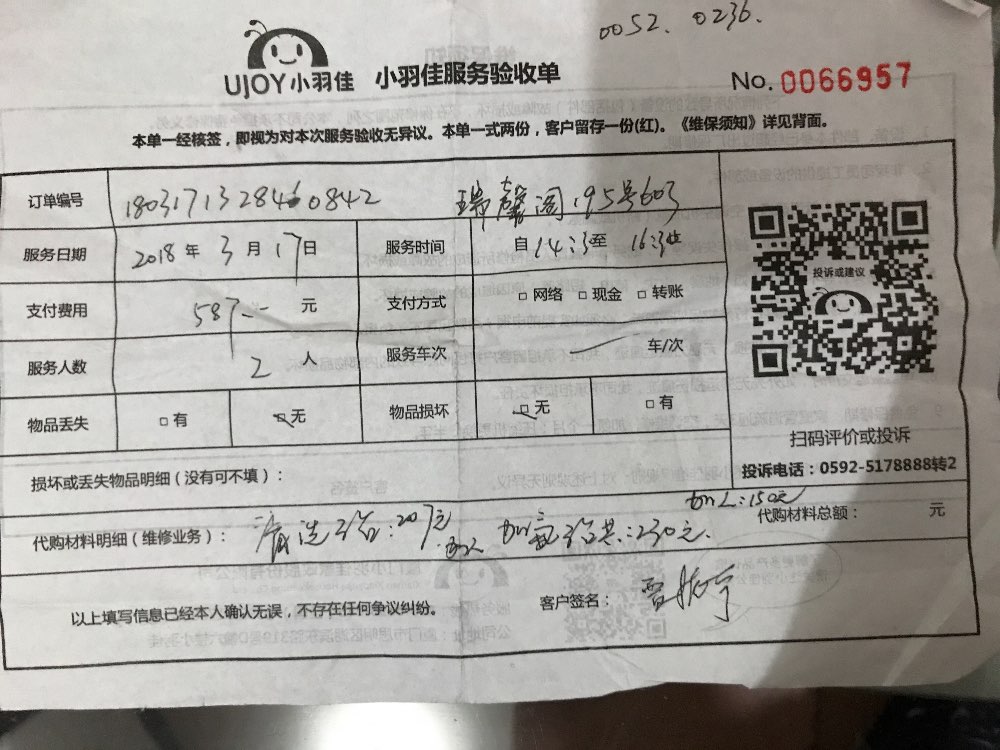 0052. 0236.
UJOY小羽佳 小羽佳服务验收单
No. 0066957
本单一经核签，即视为对本次服务验收无异议。本单一式两份，客户留存一份(红)。《维保须知》详见背面。
订单编号 180317132846 0842 瑞馨阁195号603
服务日期 2018 年 3 月 17 日 服务时间 自 14:3 至 16:3
支付费用 587 元 支付方式 □ 网络 □ 现金 □ 转账
服务人数 2 人 服务车次 车/次
物品丢失 □ 有 □ 无 物品损坏 □ 无 □ 有
投诉或建议
扫码评价或投诉
投诉电话：0592-5178888转2
损坏或丢失物品明细（没有可不填）：
代购材料明细（维修业务）： 清洗2台:207元 加氟2台共:230元. 加:150元
代购材料总额： 元
以上填写信息已经本人确认无误，不存在任何争议纠纷。 客户签名：